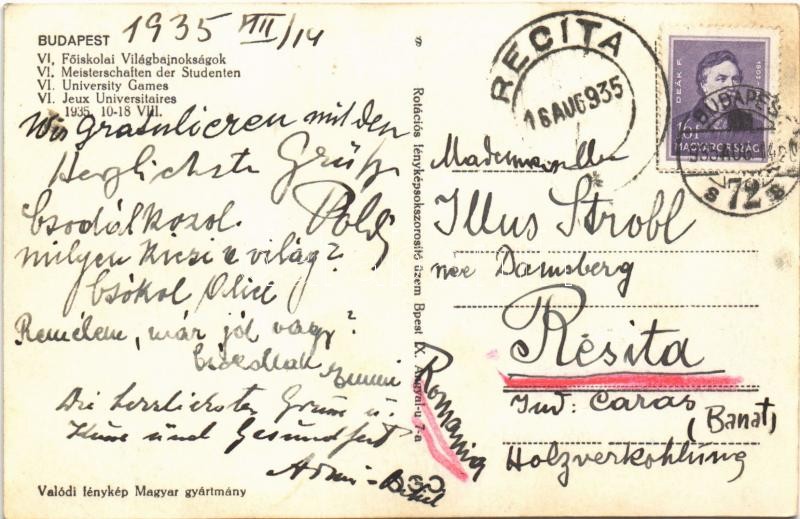 BUDAPEST 1935 VIII/14
VI. Főiskolai Világbajnokságok
VI. Meisterschaften der Studenten
VI. University Games
VI. Jeux Universitaires
1935. 10-18 VIII.
Wir gratulieren mit den
Herzlichste Grüße
Poldi
Csodálkozol
milyen kicsi e világ?
Csókol
Remélem, már jól vagy?
Emmi
Die herzlichsten u.
Küsse und Gesundheit
Valódi fénykép Magyar gyártmány
Rotációs fényképsokszorosító üzem Bpest IX. Angyal-u. 7-a
RECITA
16 AUG 935
DEÁK F.
1803-
16 f
MAGYARORSZÁG
BUDAPEST
72
Mademoiselle
Illus Strobl
nee Damsberg
Résita
Romania
Jud: Caras
(Banat)
Holzverkohlung